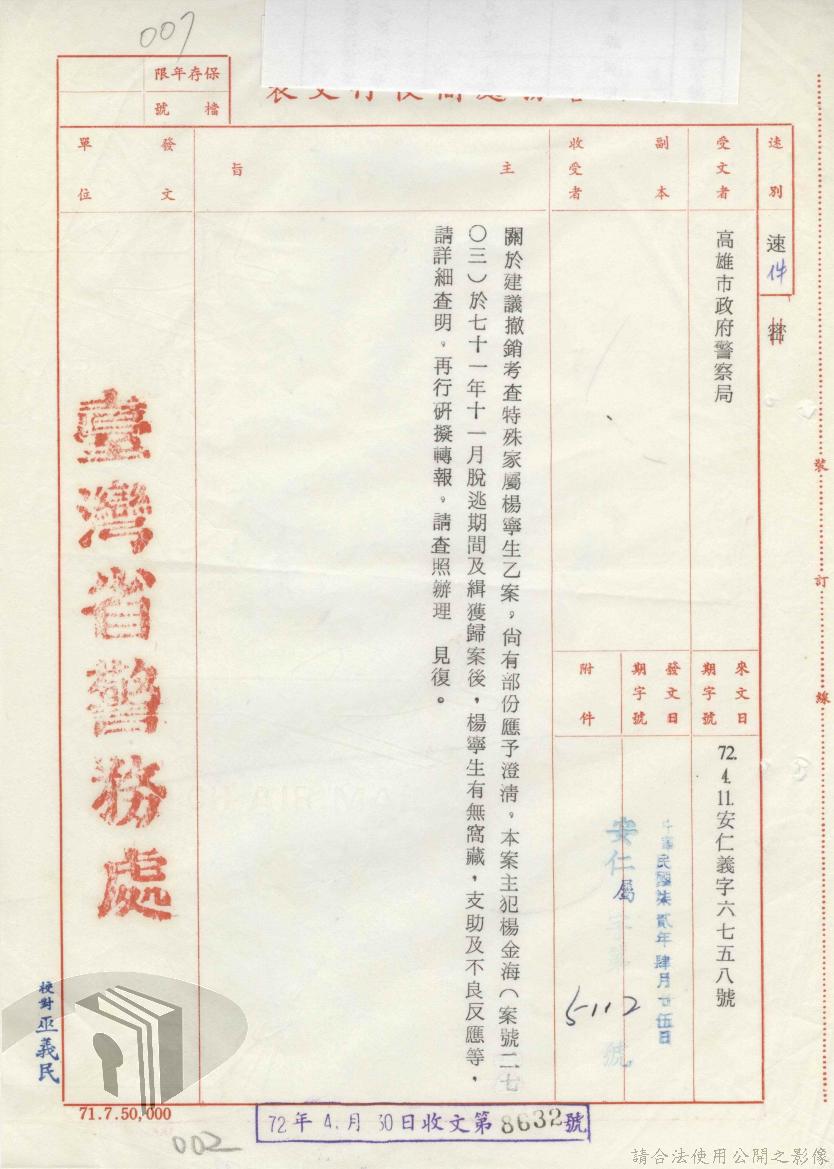 007
保存年限
檔號
速別
速件
密
受文者
高雄市政府警察局
副本收受者
來文日期字號
72.4.11.安仁義字六七五八號
發文日期字號
中華民國柒貳年肆月廿伍日
安仁屬字第5112號
附件
主旨
關於建議撤銷考查特殊家屬楊寧生乙案，尚有部份應予澄清，本案主犯楊金海（案號二七
〇三）於七十一年十一月脫逃期間及緝獲歸案後，楊寧生有無窩藏，支助及不良反應等，
請詳細查明，再行研擬轉報，請查照辦理　見復。
發文單位
臺灣省警務處
校對 巫義民
裝訂線
71.7.50,000
72年4.月30日收文第8632號
002
請合法使用公開之影像